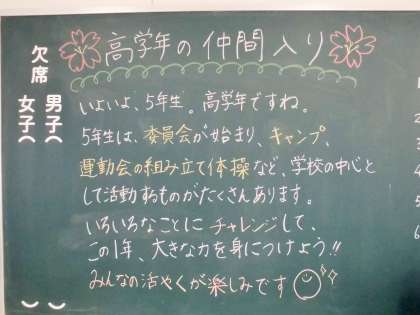 高学年の仲間入り
いよいよ、5年生。高学年ですね。
5年生は、委員会が始まり、キャンプ、
運動会の組み立て体操など、学校の中心と
して活動するものがたくさんあります。
いろいろなことにチャレンジして、
この1年、大きな力を身につけよう!!
みんなの活やくが楽しみです
欠席
男子(
)
女子(
)